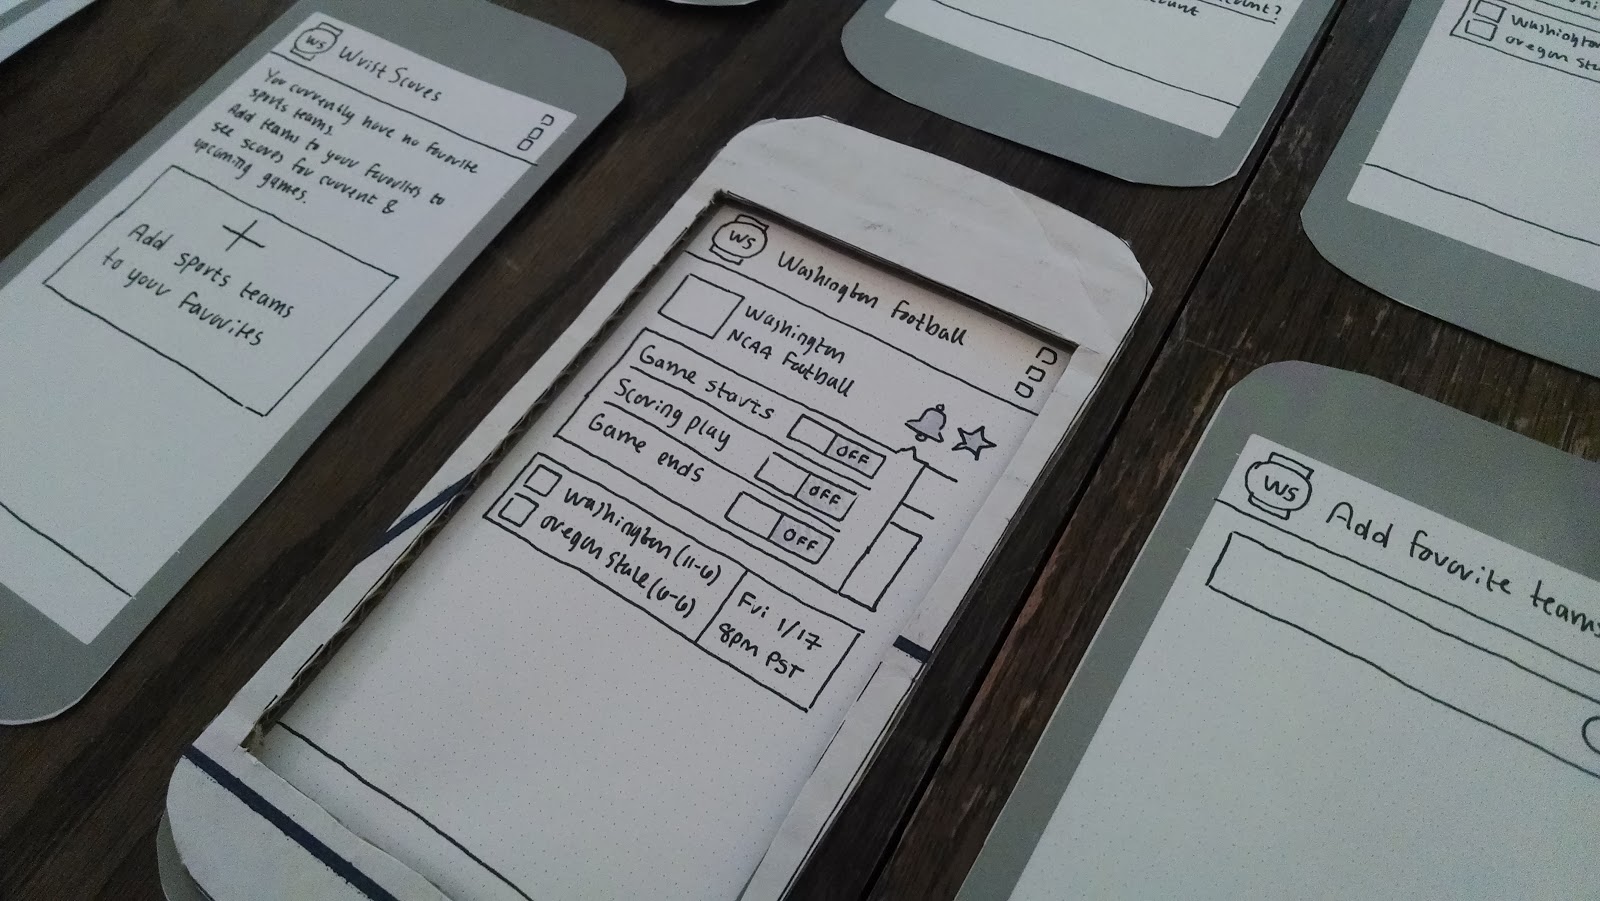 WS
Wrist Scores
You currently have no favorite
sports teams.
Add teams to your favorites to
see scores for current &
upcoming games.
+
Add sports teams
to your favorites
WS
Washington Football
Washington
NCAA Football
Game starts OFF
Scoring play OFF
Game ends OFF
Washington (11-6)
Oregon State (6-6)
Fri 1/17
8pm PST
WS
Add favorite teams
Washington
Oregon Sta